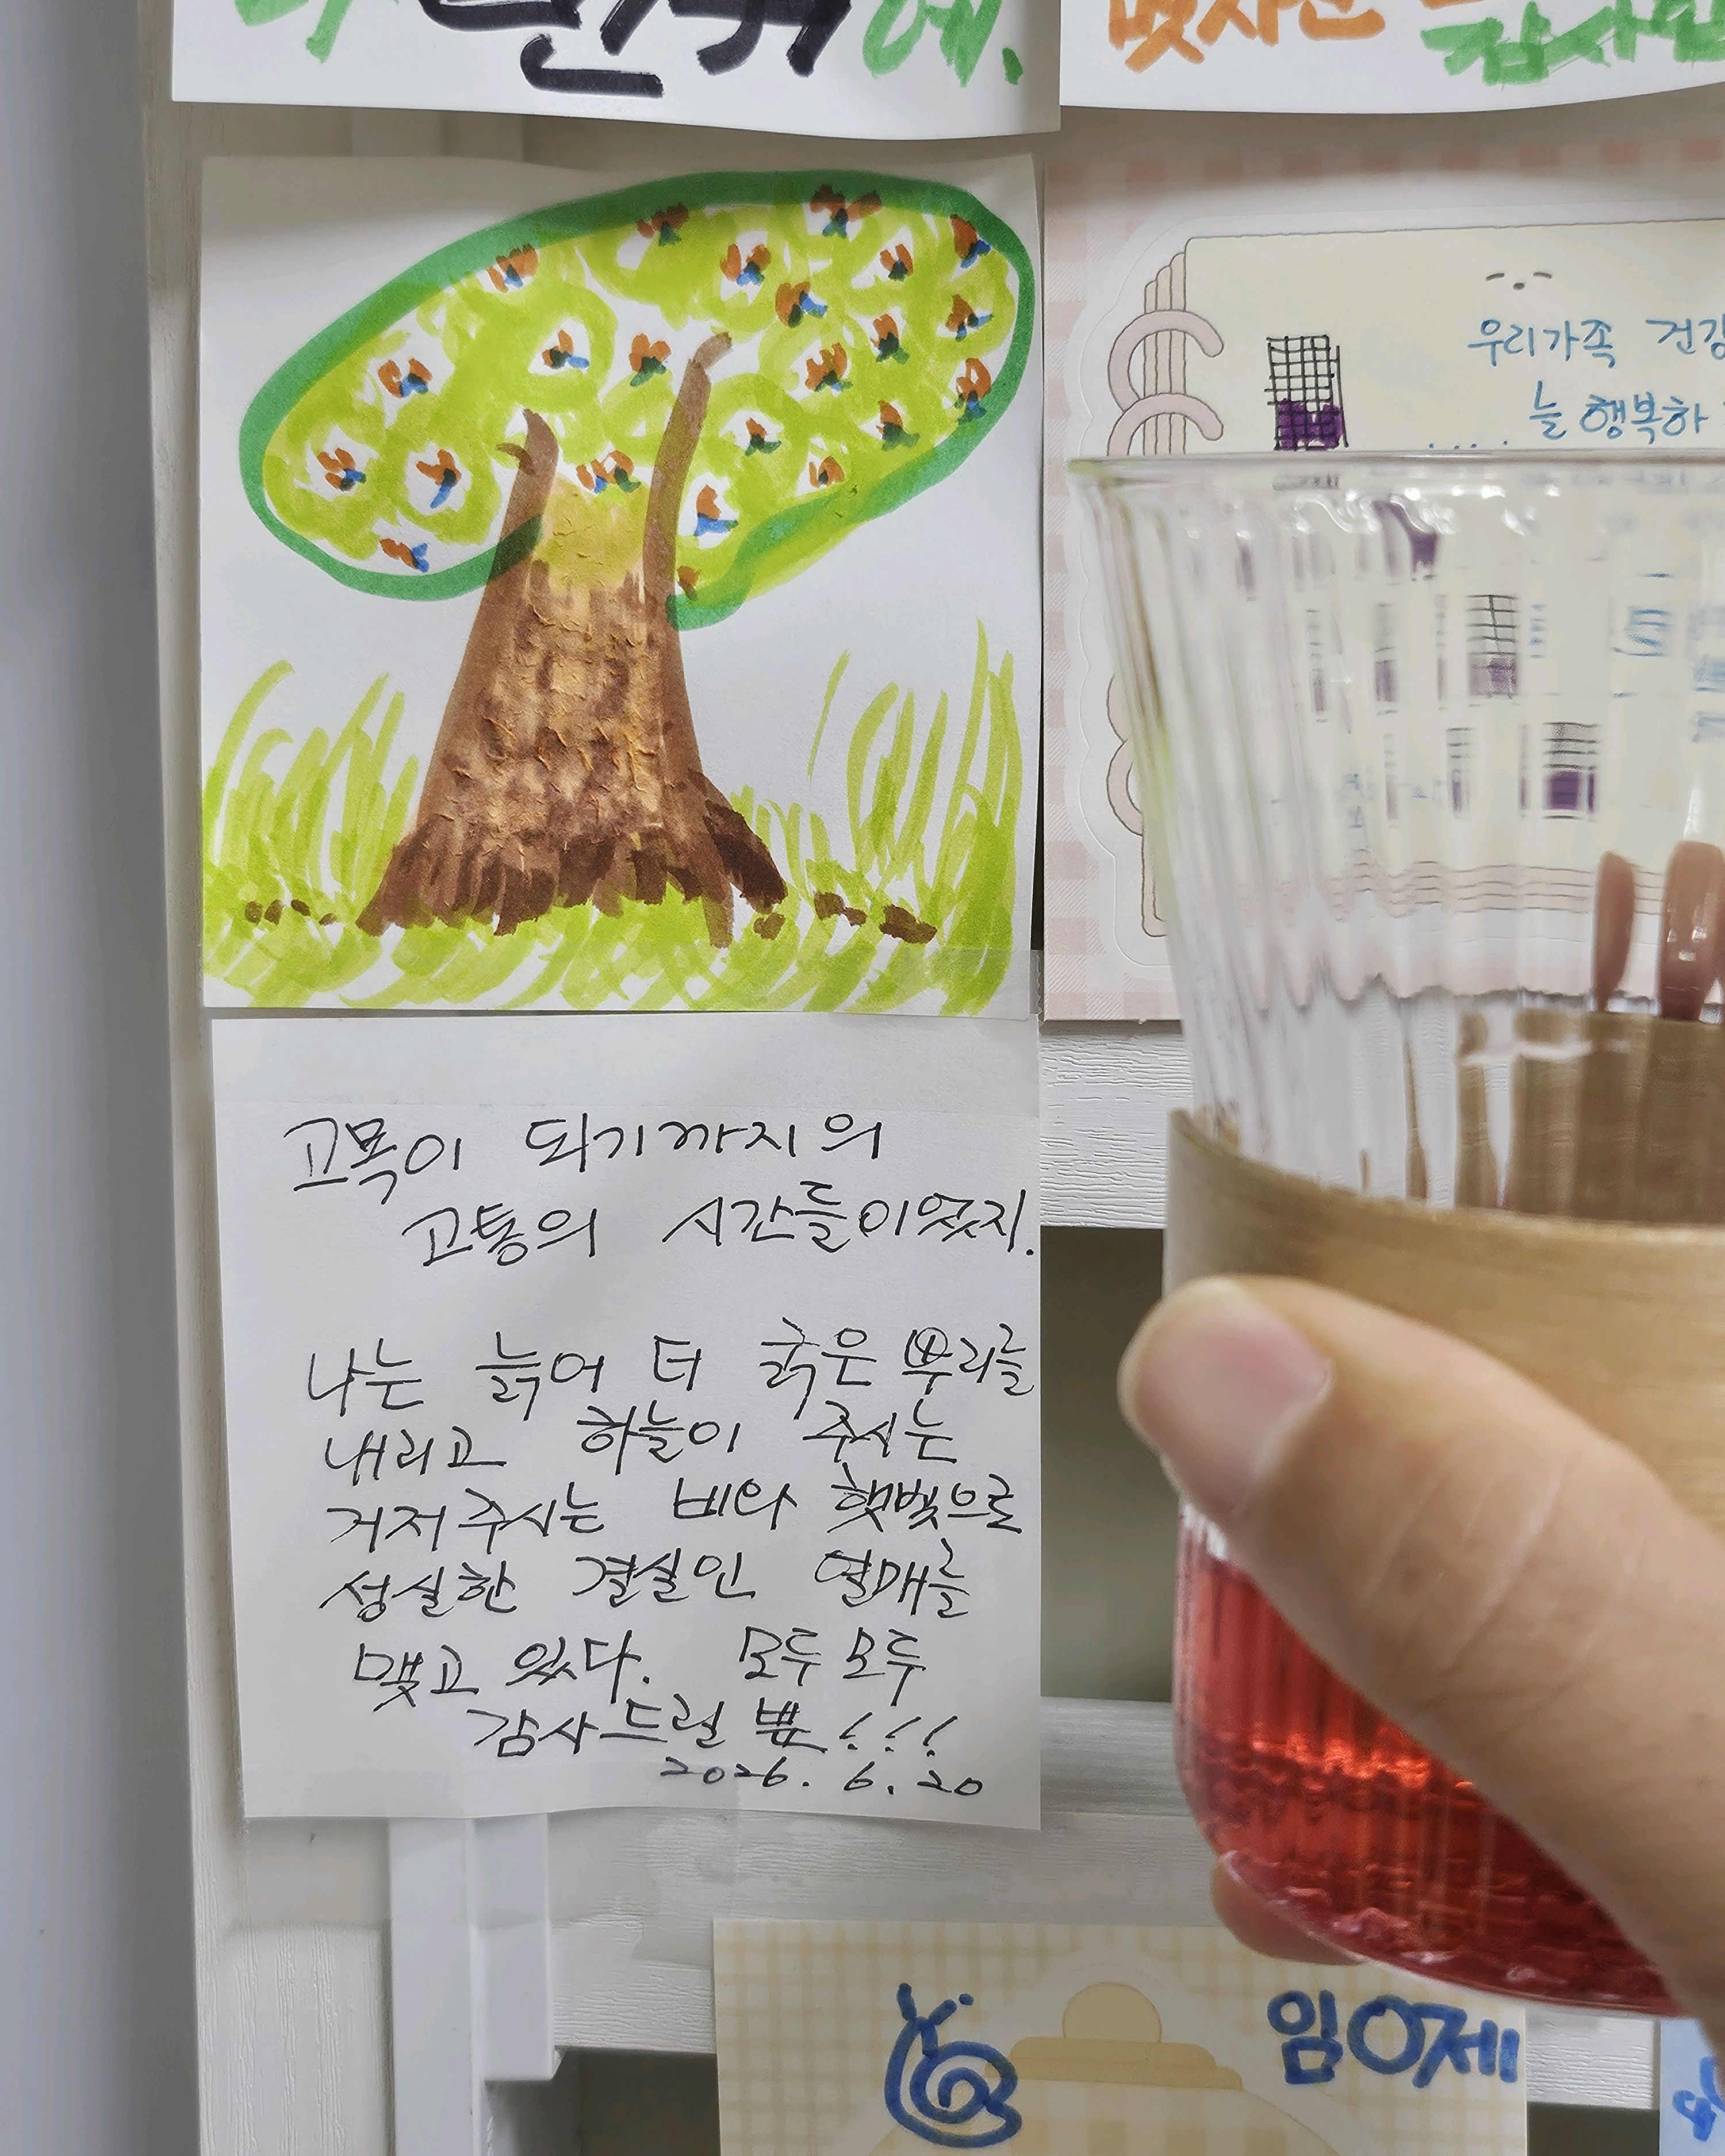 고목이 되기까지의
고통의 시간들이었지.
나는 늙어 더 굵은 뿌리를
내리고 하늘이 주시는
거저주시는 비와 햇빛으로
성실한 결실인 열매를
맺고 있다. 모두모두
감사드릴 뿐!!!
2026. 6. 20
우리가족 건강
늘 행복하
임OO제